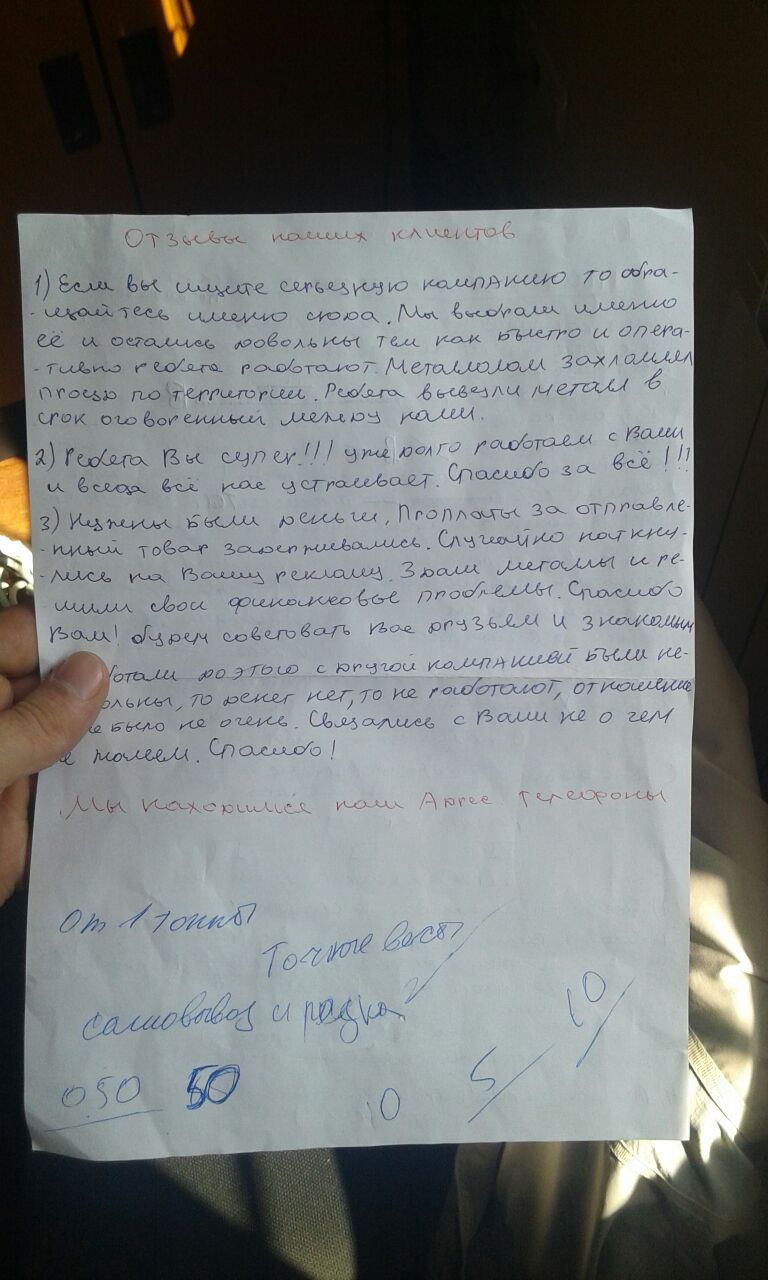 Отзывы наших клиентов
1) Если вы ищите серьезную компанию то обра-
-щайтесь именно сюда. Мы выбрали именно
её и остались довольны тем как быстро и опера-
-тивно ребята работают. Металлолом захламлял
просто по территории. Ребята вывезли металл в
срок оговоренный между нами.
2) Ребята Вы супер!!! уже долго работаем с Вами
и всегда всё нас устраевает. Спасибо за всё!!!
3) Нужены были деньги. Проплаты за отправле-
-нный товар задерживались. Случайно наткну-
-лись на Вашу рекламу. Здали металлы и ре-
-шили свои финансовые проблемы. Спасибо
Вам! будем советовать Вас друзьям и знакомым
ботали до этого с другой компанией были не-
ольны, то денег нет, то не работают, отношение
е было не очень. Связались с Вами не о чем
е жалеем. Спасибо!
Мы находимся наш Адрес телефоны
От 1 тонны
Точные весы
самовывоз и
050 50
10 5 10